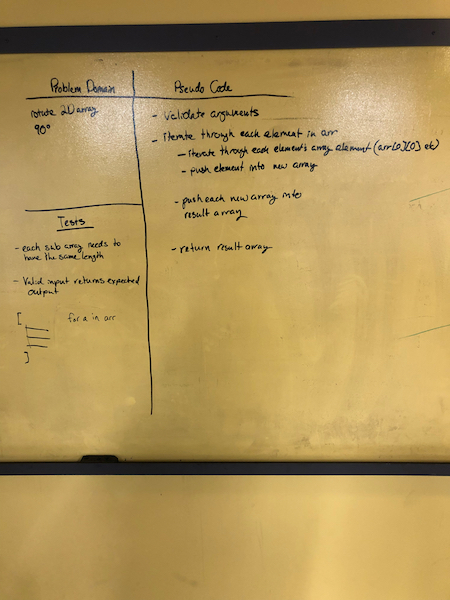 Problem Domain
rotate 2D array
90°
Tests
- each sub array needs to
have the same length
- Valid input returns expected
output
[
for a in arr
]
Pseudo Code
- Validate arguments
- iterate through each element in arr
- iterate through each element's array element (arr[0][0] etc)
- push element into new array
- push each new array into
result array
- return result array